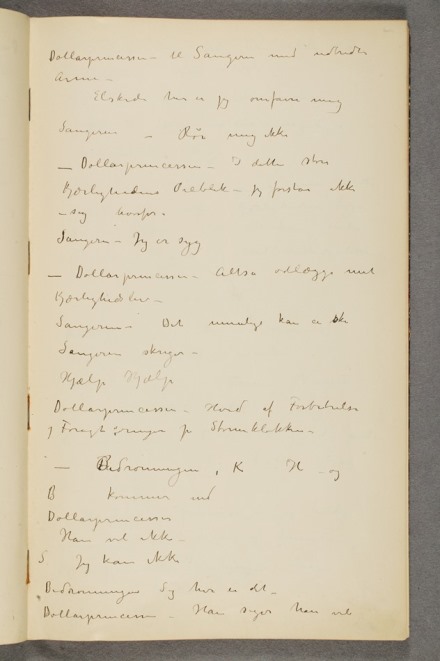 Dollarprincessen – til Sangeren med udbredte
Arme –
Elskede her er jeg omfavn mig
Sangeren – Rör mig ikke
– Dollarprincessen – I dette store
Kjærlighedens Øieblik – jeg forstår ikke
– sig hvorfor –
Sangeren – Jeg er syg
– Dollarprincessen – Altså ødelægge mit
Kjærlighedsliv –
Sangeren – Det umulige kan er ikke
Sangeren skriger –
Hjælp Hjælp
Dollarprincessen – Hvid af Forbitrelse
og Foragt ringer på Stormklokken –
– Dedronningen, K H og
B kommer ind
Dollarprincessen
Han vil ikke –
S Jeg kan ikke
Dedronningen Sig hvad er det –
Dollarprincessen – Han siger han vil